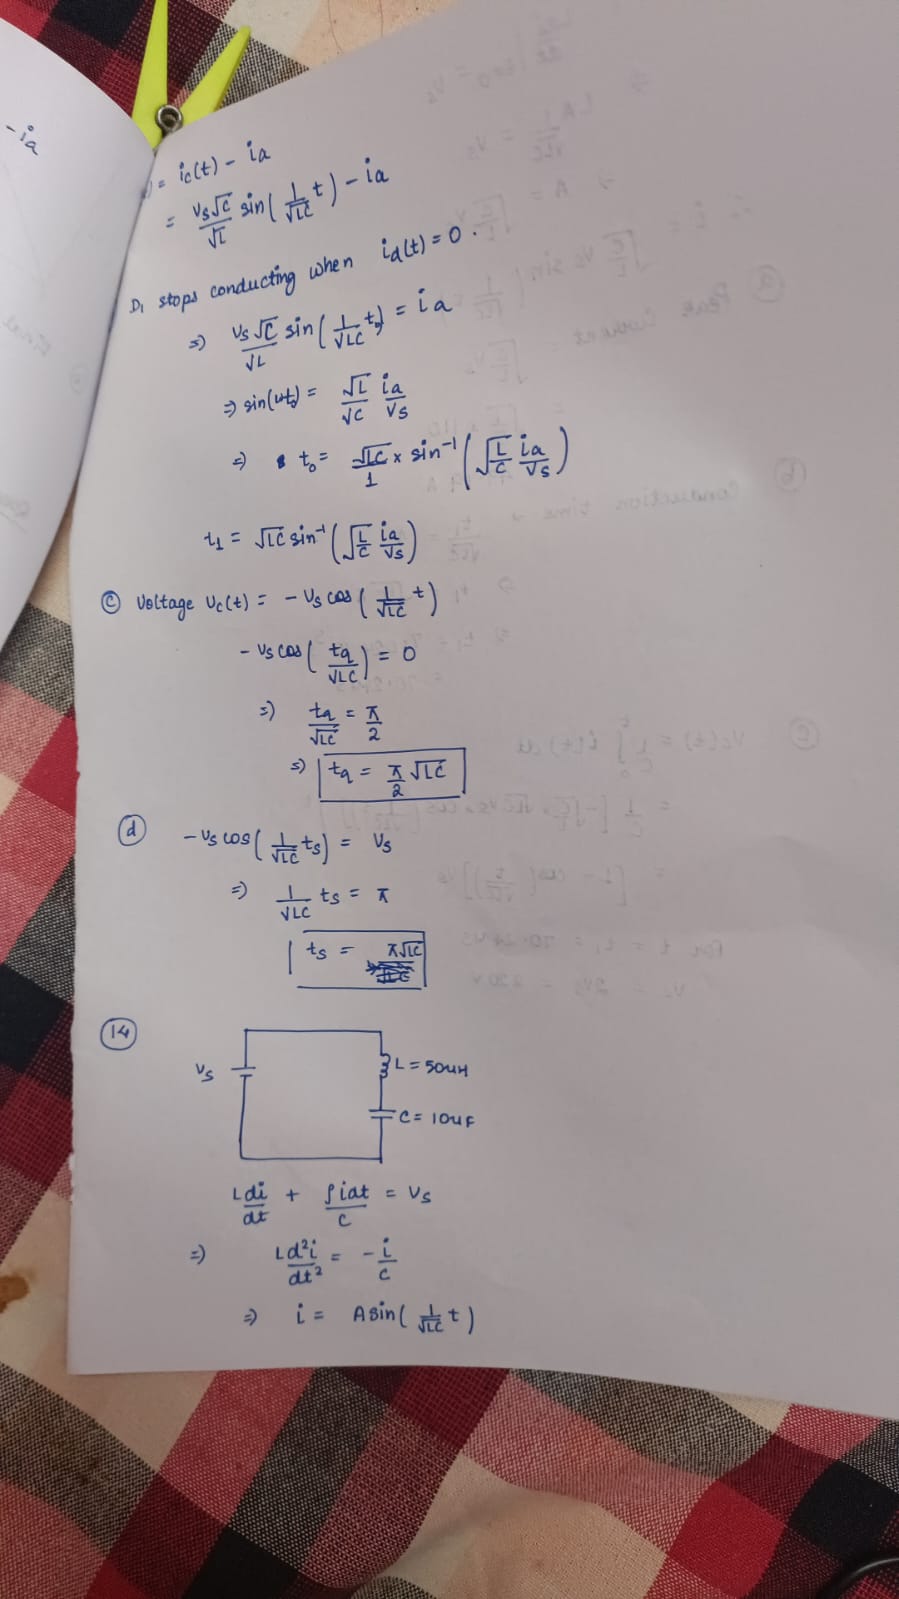 - ia
) = ic(t) - ia
= Vs√C/√L sin(1/√LC t) - ia
D1 stops conducting when id(t) = 0.
⇒ Vs√C/√L sin(1/√LC t0) = ia
⇒ sin(ωt0) = √L/√C ia/Vs
⇒ t0 = √LC/1 × sin⁻¹(√L/C ia/Vs)
t1 = √LC sin⁻¹(√L/C ia/Vs)
(c) Voltage Vc(t) = - Vs cos(1/√LC t)
- Vs cos(tq/√LC) = 0
⇒ tq/√LC = π/2
⇒ tq = π/2 √LC
(d) - Vs cos(1/√LC ts) = Vs
⇒ 1/√LC ts = π
ts = π√LC
(14)
Vs
L = 50uH
C = 10uF
Ldi/dt + ∫idt/C = Vs
⇒ Ld²i/dt² = - i/C
⇒ i = A sin(1/√LC t)